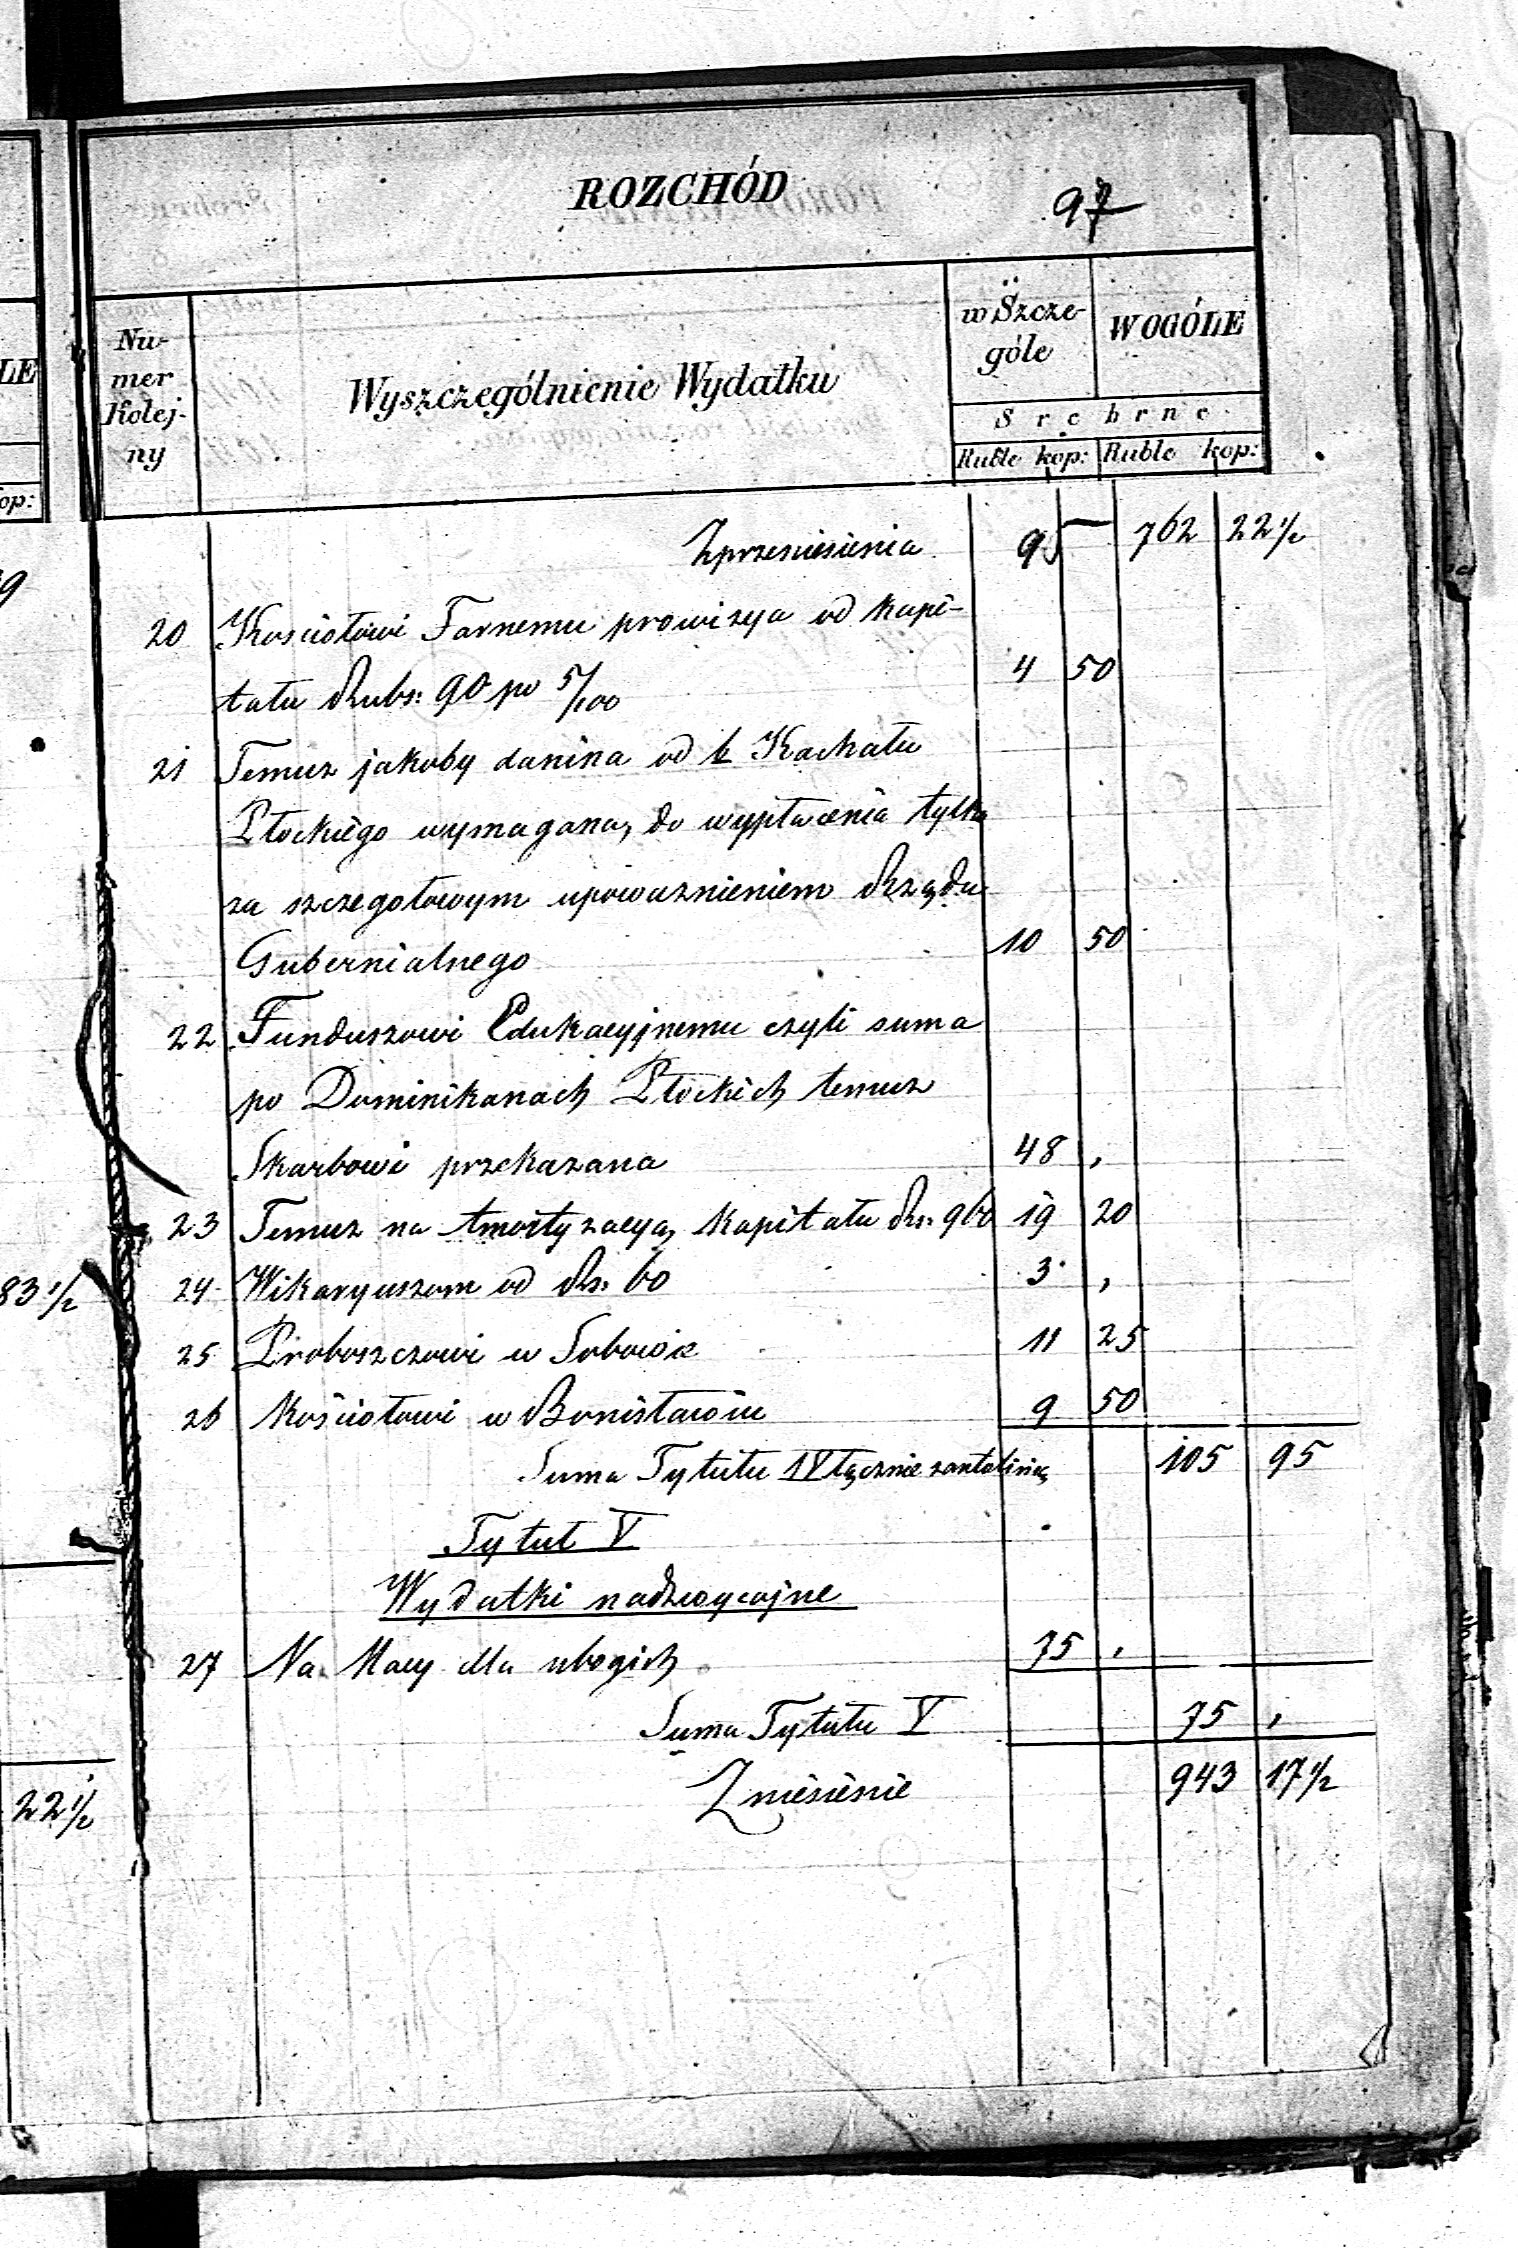 ROZCHÓD
97
Nu-
mer
Kolej-
ny
Wyszczególnienie Wydatku
w Szcze-
góle
WOGÓLE
Srebrne
Ruble kop: Ruble kop:
Zprzeniesienia 762 22 1/2
20 Kosciołowi Farnemu prowizya od kapi-
tału Rubs: 90 po 5/100 4 50
21 Temuz jakoby danina od Kachału
Płockiego wymagana, do wypłacenia tylko
za szczegołowym upowaznieniem Rządu
Gubernialnego 10 50
22 Funduszowi Edukacyjnemu czyli suma
po Dominikanach Płockich temuz
Skarbowi przekazana 48 ,
23 Temuz na amortyzacyą kapitału Rs: 960 19 20
24 Wikaryuszom od Rs: 60 3 ,
25 Proboszczowi w 11 25
26 Kościołowi w 9 50
Suma Tytułu IV łącznie 105 95
Tytuł V
Wydatki nadzwyczajne
27 Na Macy dla ubogich 75 ,
Suma Tytułu V 75 ,
Zniesienie 943 17 1/2
LE
op:
9
83 1/2
22 1/2